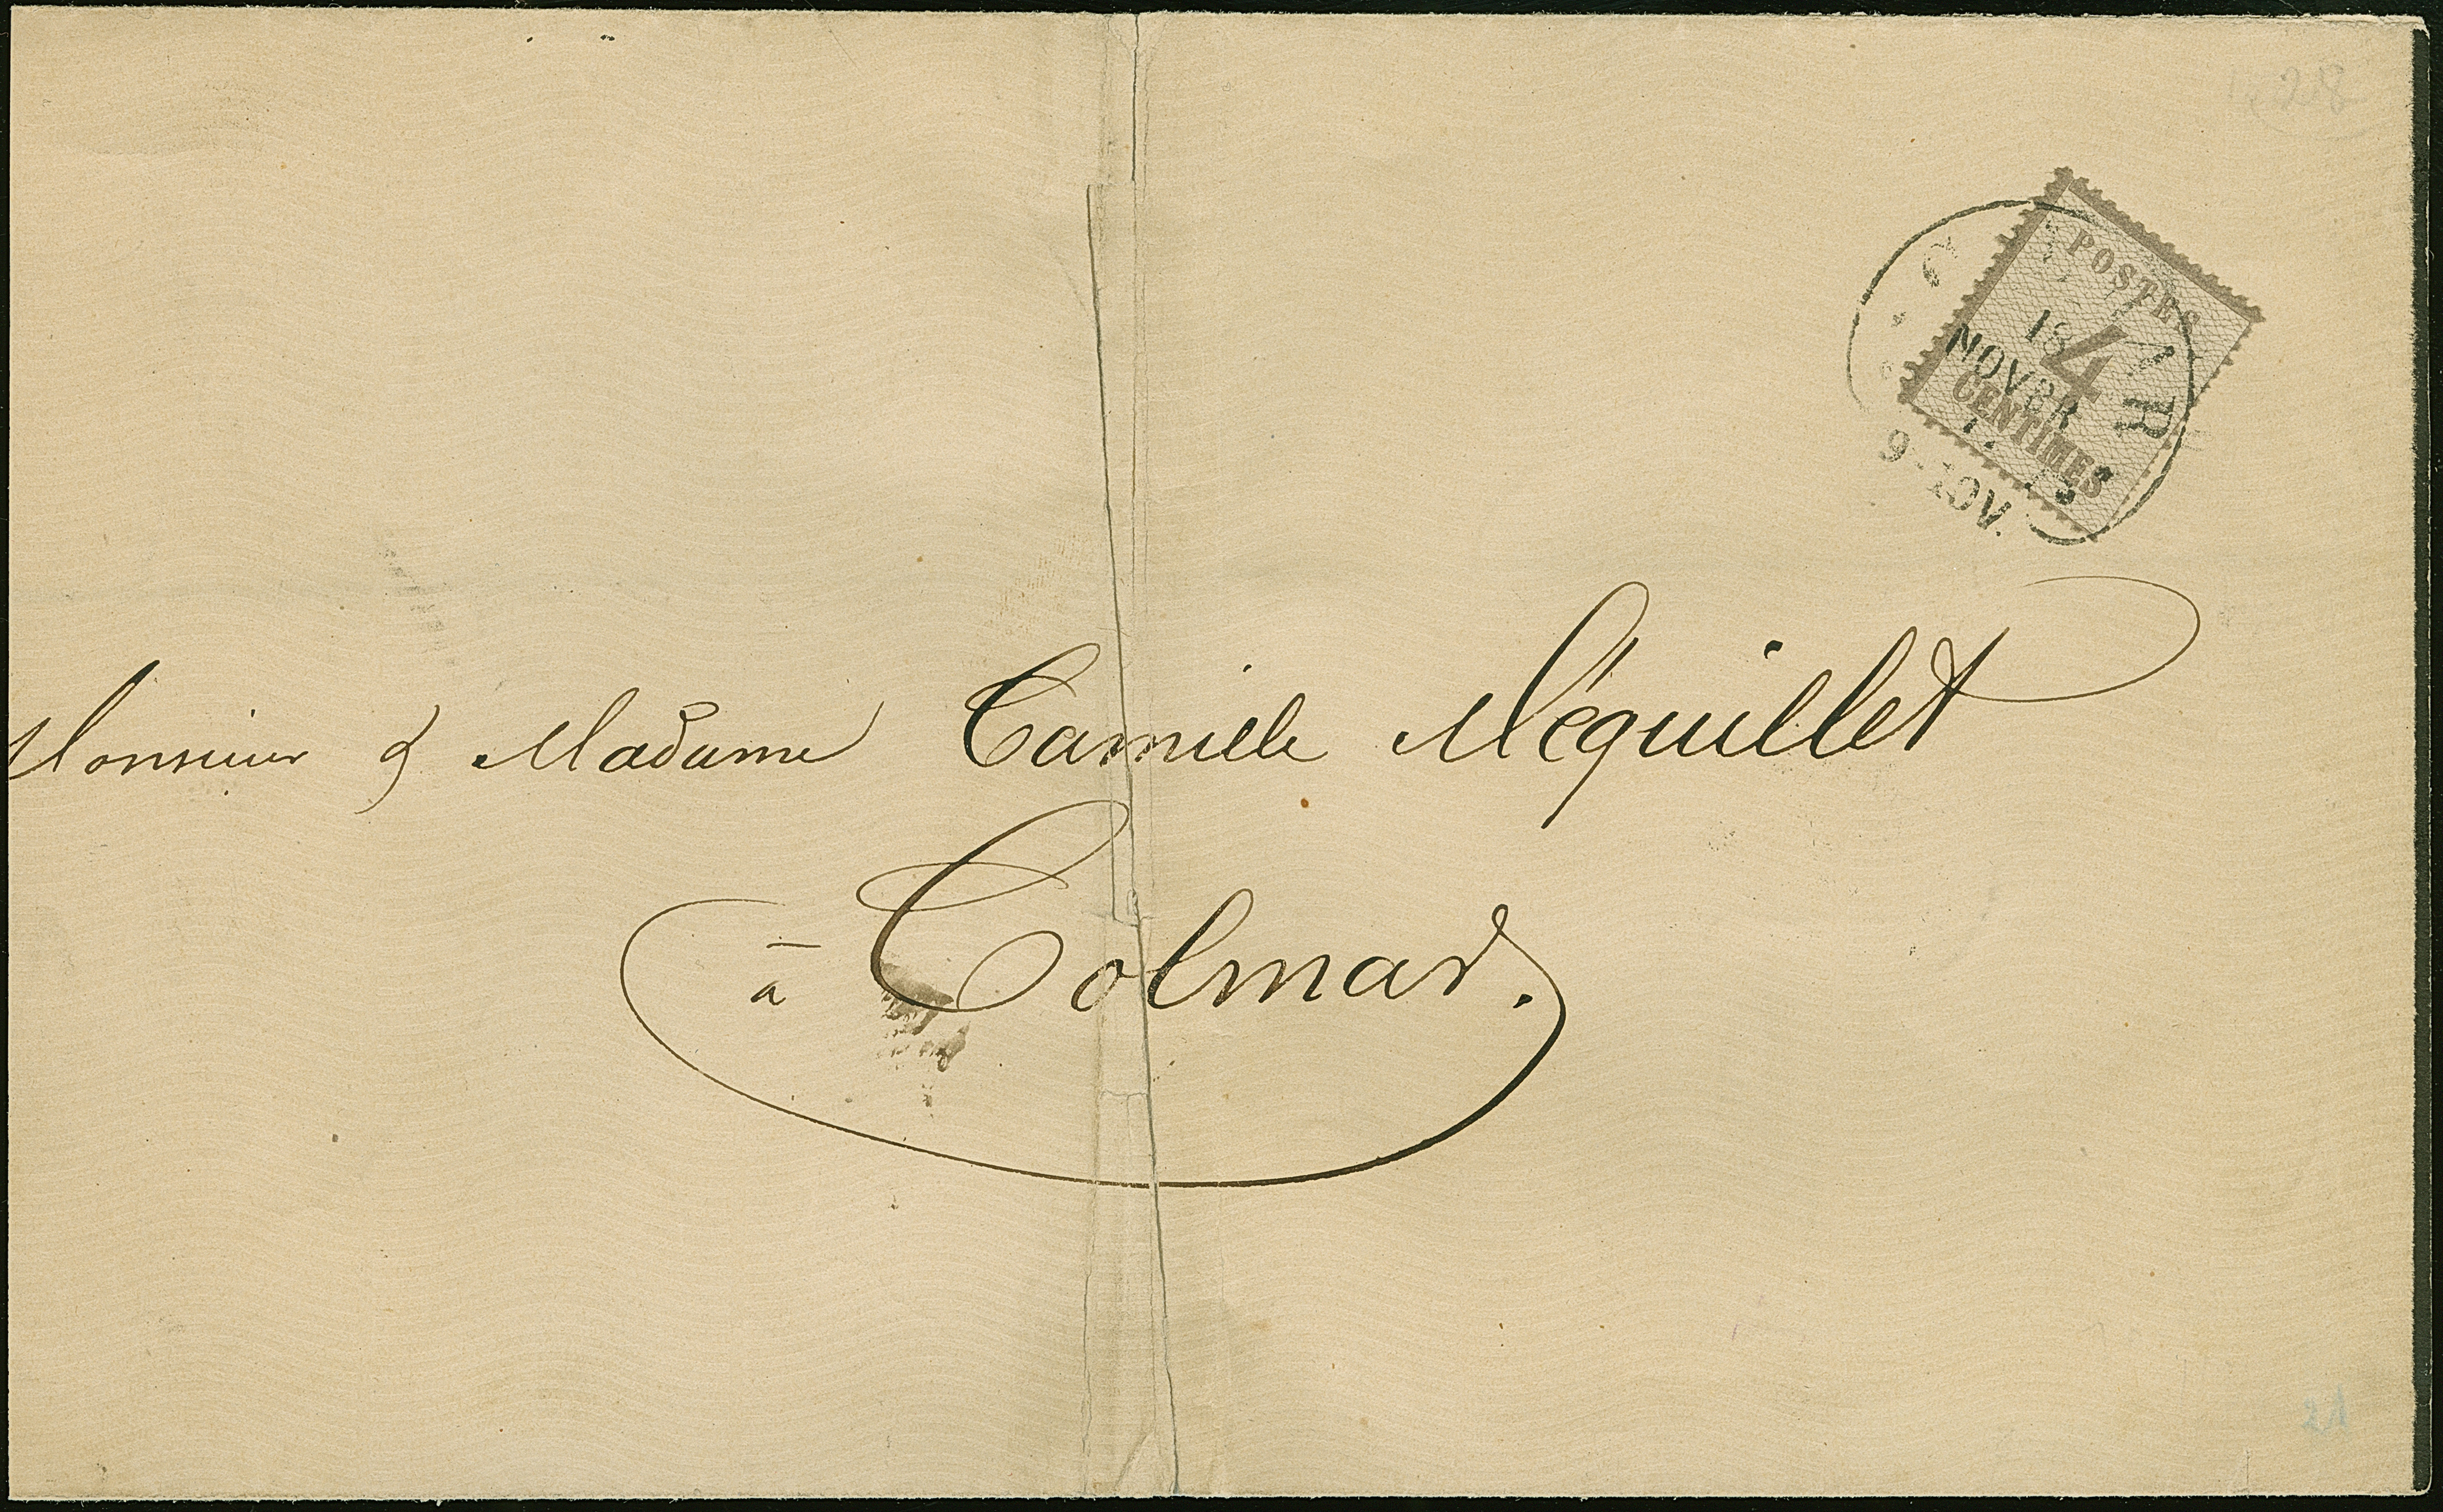 28
POSTES
4
CENTIMES
18
NOVBR
9-10V.
Monsieur & Madame Camille Méquillet
à Colmar.
21